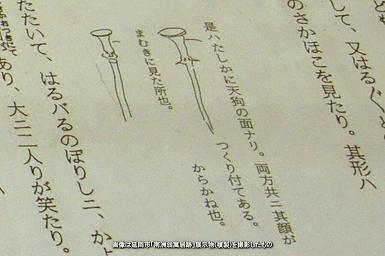 のさかほこを見たり。其形ハ
して、又はるぐと
是ハたしかに天狗の面ナリ。両方共ニ其顔が
つくり付てある。
からかね也。
まむきに見た所也。
たたいて、はるバるのぼりしニ、かよ
あり、大ニ二人りが笑たり。
画像は延岡市「南洲翁寓居跡」展示物(複製)を撮影したもの